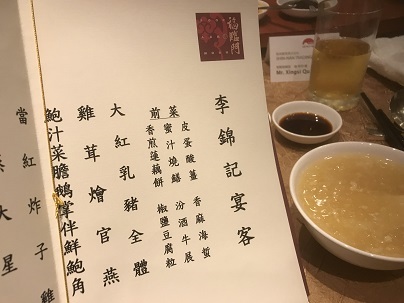 福臨門
李錦記宴客
前菜
皮蛋酸薑 香麻海蜇
蜜汁燒鱔 汾酒牛展
香煎蓮藕餅 椒鹽豆腐粒
大紅乳豬全體
雞茸燴官燕
鮑汁菜膽鵝掌伴鮮鮑角
當紅炸子雞
大星
Mr.